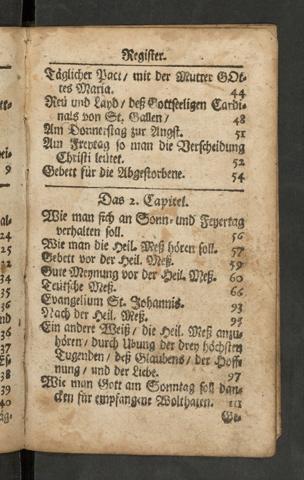 Register.
Täglicher Pact / mit der Mutter GOt-
tes Maria. 44
Reü und Layd / deß Gottseeligen Cardi-
nals von St. Gallen / 48
Am Donnerstag zur Angst. 51
Am Freytag so man die Verscheidung
Christi leütet. 52
Gebett für die Abgestorbene. 54
Das 2. Capitel.
Wie man sich an Sonn- und Feyertag
verhalten soll. 56
Wie man die Heil. Meß hören soll. 57
Gebett vor der Heil. Meß. 59
Gute Meynung vor der Heil. Meß. 60
Teütsche Meß. 66
Evangelium St. Johannis. 93
Nach der Heil. Meß. 95
Ein andere Weiß / die Heil. Meß anzu-
hören / durch Übung der drey höchsten
Tugenden / deß Glaubens / der Hoff-
nung / und der Liebe. 97
Wie man Gott am Sonntag soll dan-
cken für empfangene Wolthaten. 111
Ge-